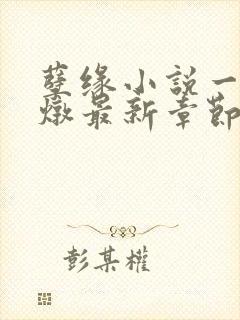 孽缘小說一
燉最新章節
彭某權